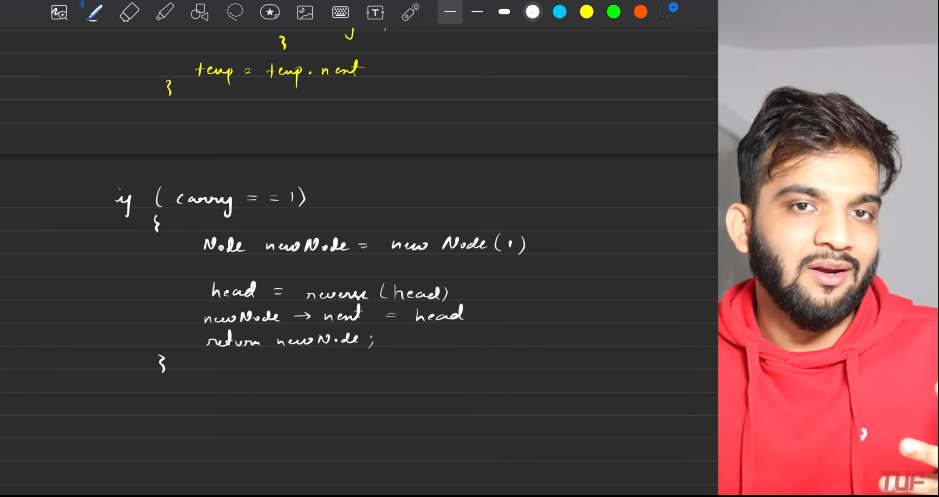 }
temp = temp. next
}
if ( carry == 1)
{
Node newNode = new Node(1)
head = reverse (head)
newNode → next = head
return newNode;
}
TUF